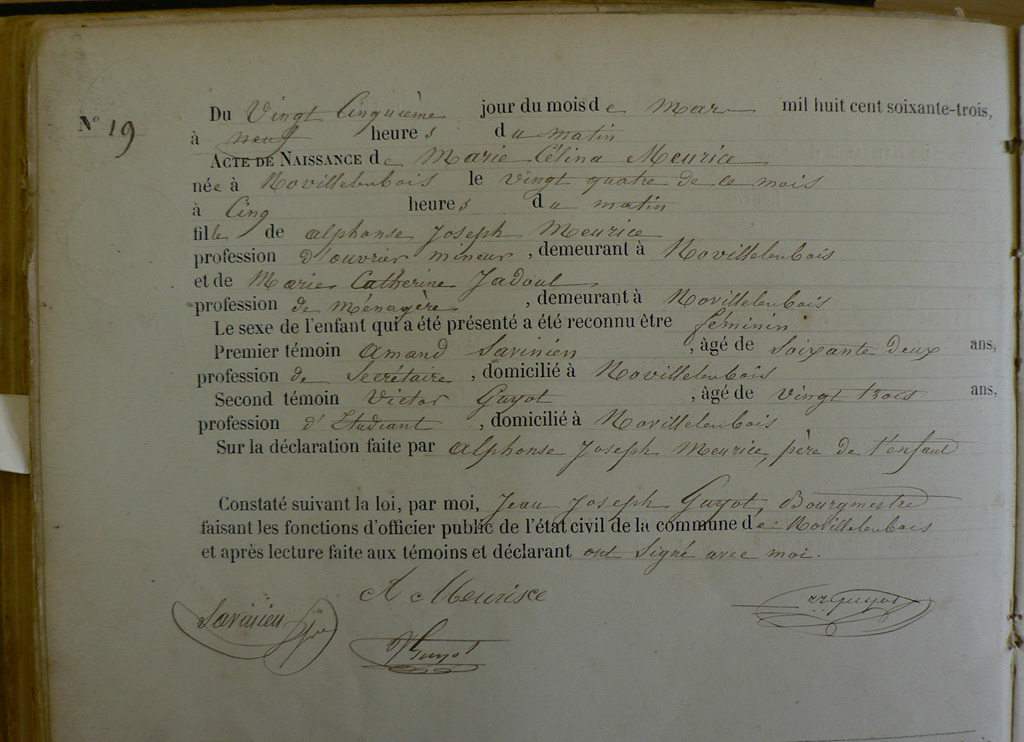 N° 19
Du Vingt Cinquième jour du mois de Mar mil huit cent soixante-trois,
à neuf heures du matin
ACTE DE NAISSANCE de Marie Célina Meurice
née à Novillelenbois le vingt quatre de ce mois
à Cinq heures du matin
fille de alphonse Joseph Meurice
profession d'ouvrier mineur, demeurant à Novillelenbois
et de Marie Catherine Jadoul
profession de Ménagère, demeurant à Novillelenbois
Le sexe de l'enfant qui a été présenté a été reconnu être féminin
Premier témoin Amand Savinien, âgé de Soixante deux ans,
profession de Secrétaire, domicilié à Novillelenbois
Second témoin Victor Guyot, âgé de vingt trois ans,
profession d'Etudiant, domicilié à Novillelenbois
Sur la déclaration faite par alphonse Joseph Meurice, père de l'enfant
Constaté suivant la loi, par moi, Jean Joseph Guyot, Bourgmestre
faisant les fonctions d'officier public de l'état civil de la commune de Novillelenbois
et après lecture faite aux témoins et déclarant ont signé avec moi.
A Meurisce
Savinien
JJ Guyot
VGuyot